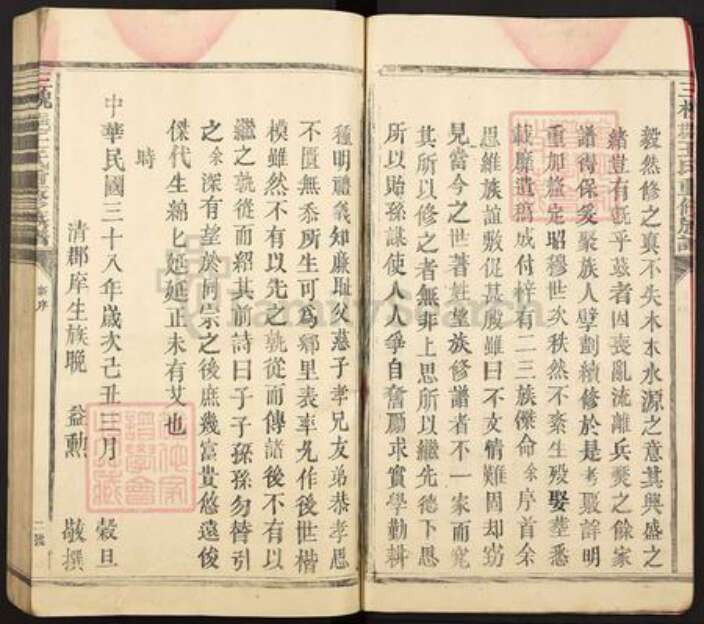 毅然修之冀不失木本水源之意其興盛之
緒豈有既乎茲者因喪亂流離兵燹之餘家
譜得保爰聚族人擘劃續修於是考覈詳明
重加釐定昭穆世次秩然不紊生歿娶塟悉
載靡遺稿成付梓有二三族傑命余序首余
思維族誼敦促甚殷雖曰不文情難固却竊
見當今之世著姓望族修譜者不一家而究
其所以修之者無非上思所以繼先德下思
所以貽孫謀使人人爭自奮勵求實學勤耕
種明禮義知廉恥父慈子孝兄友弟恭孝思
不匱無忝所生可為鄉里表率允作後世楷
模雖然不有以先之孰從而傳諸後不有以
繼之孰從而紹其前詩曰子子孫孫勿替引
之余深有望於同宗之後庶幾富貴悠遠俊
傑代生綿匕延延正未有艾也
時
中華民國三十八年歲次己丑三月 穀旦
清郡庠生族晚 益勳 敬撰
三槐
序
FamilySearch